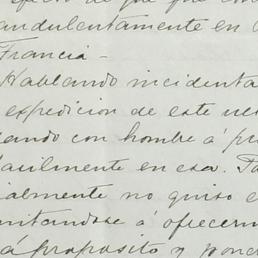 efecto de que que con
audulentamente en
Francia-
Hablando incidenta
expedicion de este
ando con hombre á
acilmente en esa.
ialmente no quiso e
mitandose á ofrecerm
á proposito y pond